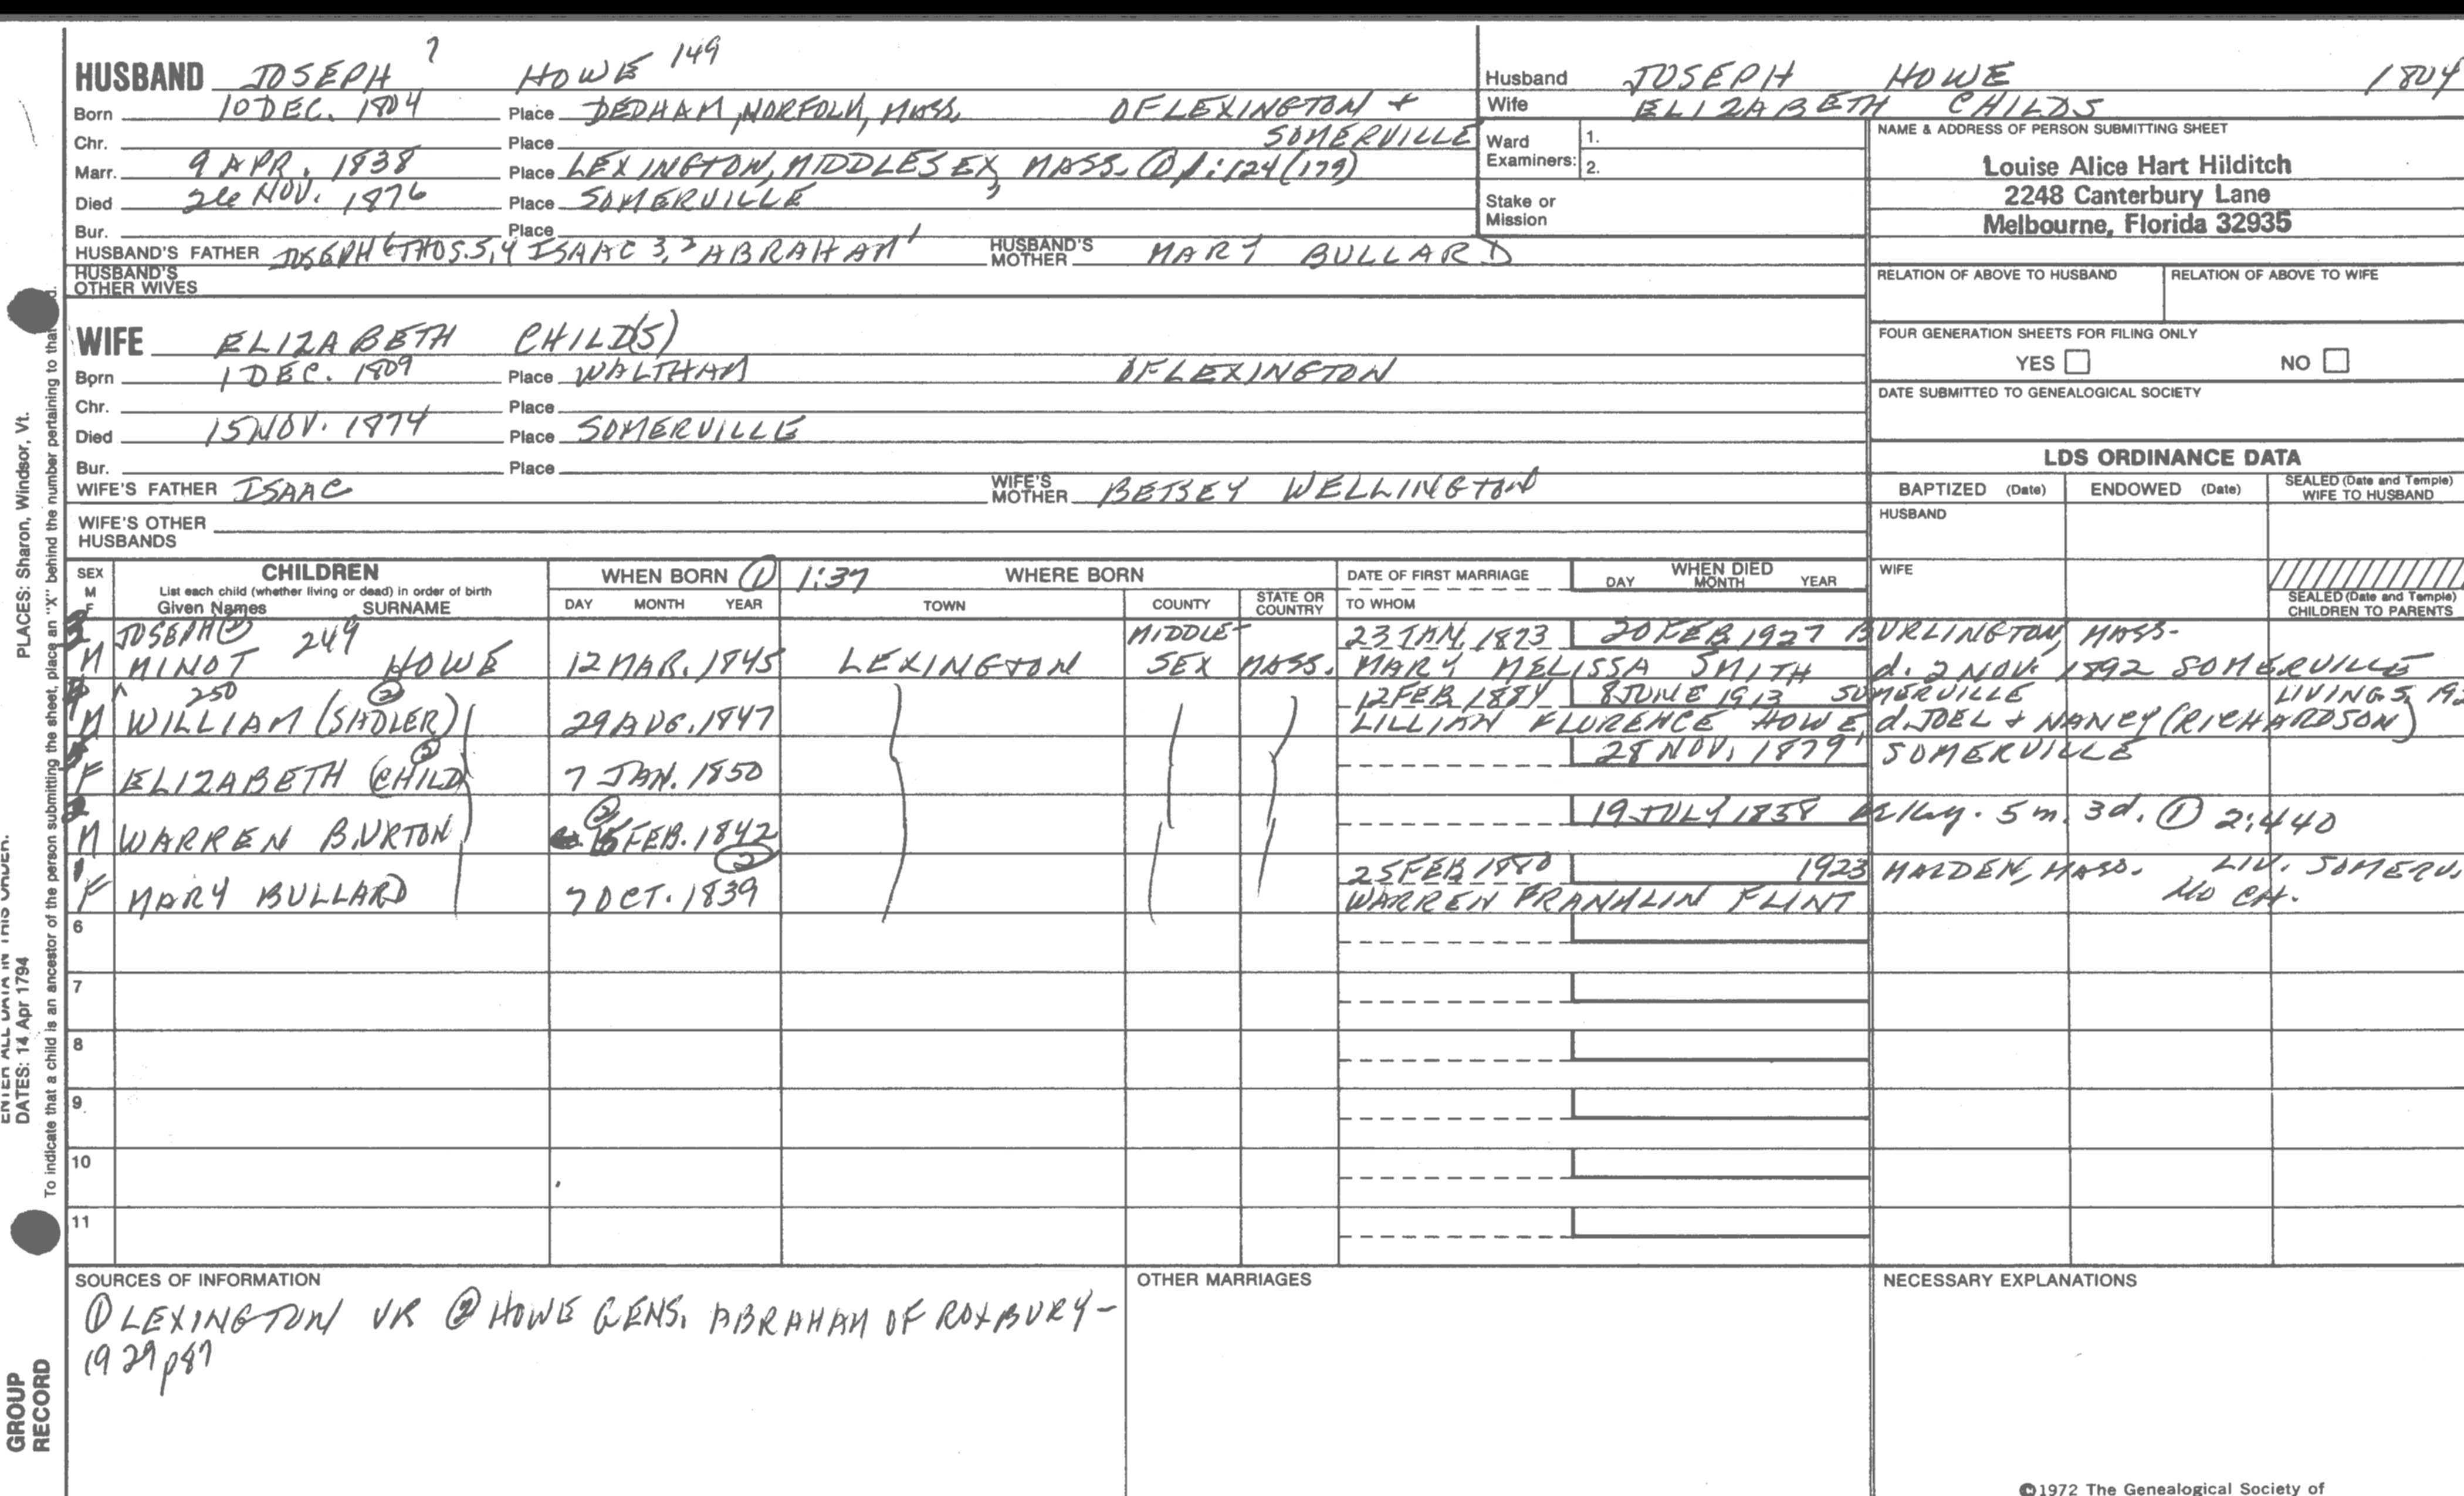 HUSBAND JOSEPH 7 HOWE 149
Born 10 DEC. 1804 Place DEDHAM, NORFOLK, MASS. OF LEXINGTON +
Chr. Place SOMERVILLE
Marr. 9 APR. 1838 Place LEXINGTON, MIDDLESEX, MASS. ① 1:124 (179)
Died 26 NOV. 1876 Place SOMERVILLE
Bur. Place
HUSBAND'S FATHER JOSEPH 6 THOS. 5,4 ISAAC 3,2 ABRAHAM 1 HUSBAND'S MOTHER MARY BULLARD
HUSBAND'S OTHER WIVES
WIFE ELIZABETH CHILD(S)
Born 1 DEC. 1809 Place WALTHAM OF LEXINGTON
Chr. Place
Died 15 NOV. 1874 Place SOMERVILLE
Bur. Place
WIFE'S FATHER ISAAC WIFE'S MOTHER BETSEY WELLINGTON
WIFE'S OTHER HUSBANDS
Husband JOSEPH HOWE 1804
Wife ELIZABETH CHILDS
Ward Examiners: 1.
2.
Stake or Mission
NAME & ADDRESS OF PERSON SUBMITTING SHEET
Louise Alice Hart Hilditch
2248 Canterbury Lane
Melbourne, Florida 32935
RELATION OF ABOVE TO HUSBAND RELATION OF ABOVE TO WIFE
FOUR GENERATION SHEETS FOR FILING ONLY
YES NO
DATE SUBMITTED TO GENEALOGICAL SOCIETY
LDS ORDINANCE DATA
BAPTIZED (Date) ENDOWED (Date) SEALED (Date and Temple) WIFE TO HUSBAND
HUSBAND
WIFE
SEALED (Date and Temple) CHILDREN TO PARENTS
SEX M F CHILDREN WHEN BORN ① 1:37 WHERE BORN DATE OF FIRST MARRIAGE WHEN DIED
List each child (whether living or dead) in order of birth
Given Names SURNAME DAY MONTH YEAR TOWN COUNTY STATE OR COUNTRY TO WHOM DAY MONTH YEAR
3 JOSEPH ② 249 MIDDLE- 23 JAN. 1873 20 FEB. 1927 BURLINGTON, MASS.
M MINOT HOWE 12 MAR. 1845 LEXINGTON SEX MASS. MARY MELISSA SMITH d. 2 NOV. 1892 SOMERVILLE
4 250 ② 12 FEB 1884 8 JUNE 1913 SOMERVILLE LIVING S. 192
M WILLIAM (SADLER) 29 AUG. 1847 LILLIAN FLORENCE HOWE, d. JOEL + NANCY (RICHARDSON)
5 ② 28 NOV. 1879 SOMERVILLE
F ELIZABETH (CHILD 7 JAN. 1850
2 ② 19 JULY 1858 5 m. 3d. ① 2:440
M WARREN BURTON FEB. 1842
1 ② 25 FEB 1880 1923 MALDEN, MASS. LIV. SOMERV.
F MARY BULLARD 7 OCT. 1839 WARREN FRANKLIN FLINT NO CH.
6
7
8
9
10
11
SOURCES OF INFORMATION
① LEXINGTON VR ② HOWE GENS. ABRAHAM OF ROXBURY-
1929 p87
OTHER MARRIAGES
NECESSARY EXPLANATIONS
©1972 The Genealogical Society of
PLACES: Sharon, Windsor, Vt.
To indicate that a child is an ancestor of the person submitting the sheet, place an "X" behind the number pertaining to that
ENTER ALL DATA IN THIS ORDER.
DATES: 14 Apr 1794
GROUP
RECORD